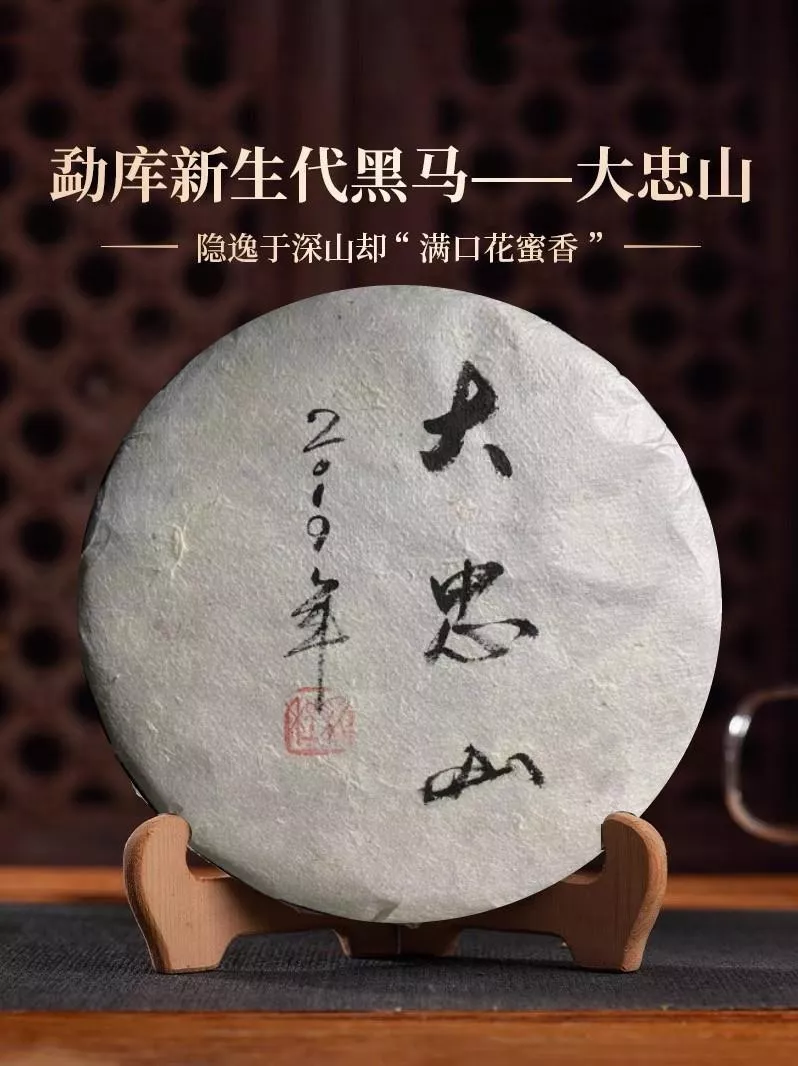 勐库新生代黑马——大忠山
隐逸于深山却“满口花蜜香”
大忠山
2019年